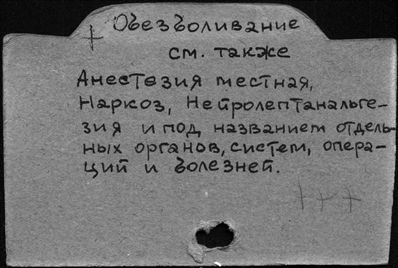 Обезболивание
см. также
Анестезия местная,
Наркоз, Нейролептанальге-
зия и под названием отдель-
ных органов, систем, опера-
ций и болезней.
+++